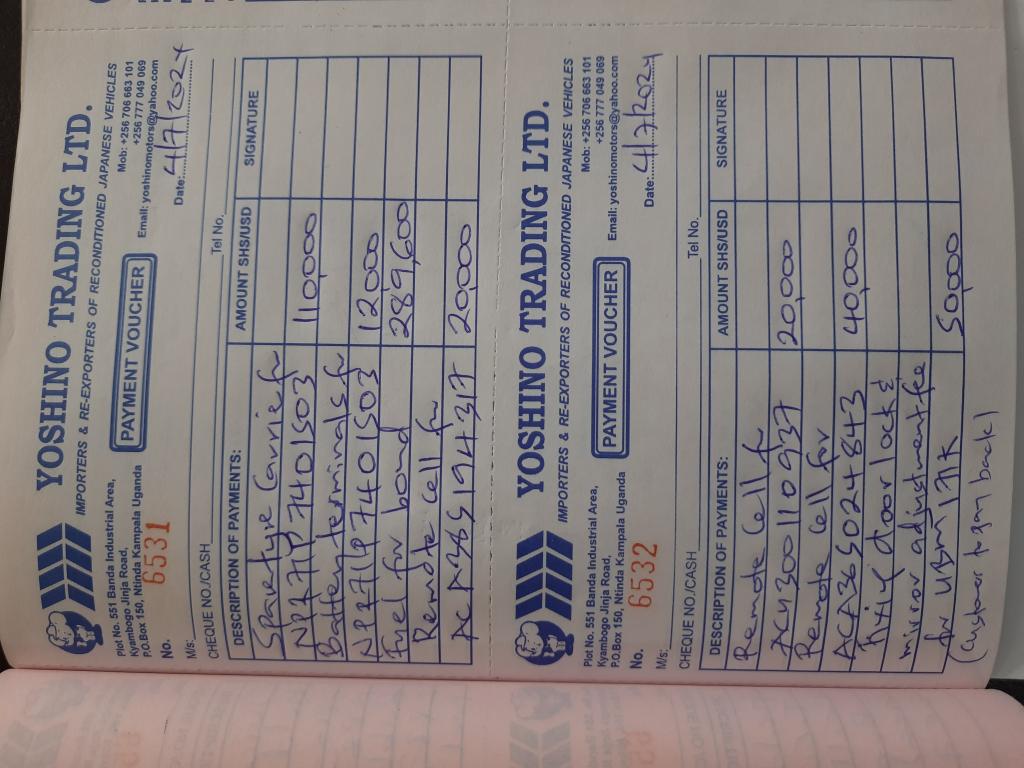 YOSHINO TRADING LTD.
IMPORTERS & RE-EXPORTERS OF RECONDITIONED JAPANESE VEHICLES
Plot No. 551 Banda Industrial Area,
Kyambogo Jinja Road,
P.O.Box 150, Ntinda Kampala Uganda
PAYMENT VOUCHER
Mob: +256 706 663 101
+256 777 049 069
Email: yoshinomotors@yahoo.com
No. 6531
Date: 4/7/2024
M/s:
CHEQUE NO./CASH Tel No.
DESCRIPTION OF PAYMENTS: AMOUNT SHS/USD SIGNATURE
Spare tyre Carrier fr
110,000
Battery terminals fr
12,000
Fuel for bond 289,600
Remote cell fr
20,000
YOSHINO TRADING LTD.
IMPORTERS & RE-EXPORTERS OF RECONDITIONED JAPANESE VEHICLES
Plot No. 551 Banda Industrial Area,
Kyambogo Jinja Road,
P.O.Box 150, Ntinda Kampala Uganda
PAYMENT VOUCHER
Mob: +256 706 663 101
+256 777 049 069
Email: yoshinomotors@yahoo.com
No. 6532
Date: 4/7/2024
M/s:
CHEQUE NO./CASH Tel No.
DESCRIPTION OF PAYMENTS: AMOUNT SHS/USD SIGNATURE
Remote Cell fr
ACU300110937 20,000
Remote cell for
ACA365024843 40,000
door lock &
mirror adjustment fee
for UBM 171K 50,000
(Customer to pay back)